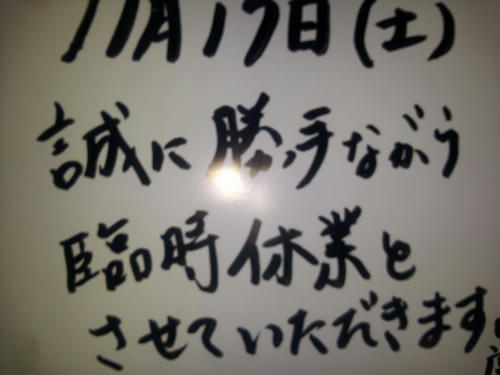 11月17日(土)
誠に勝手ながら
臨時休業と
させていただきます。